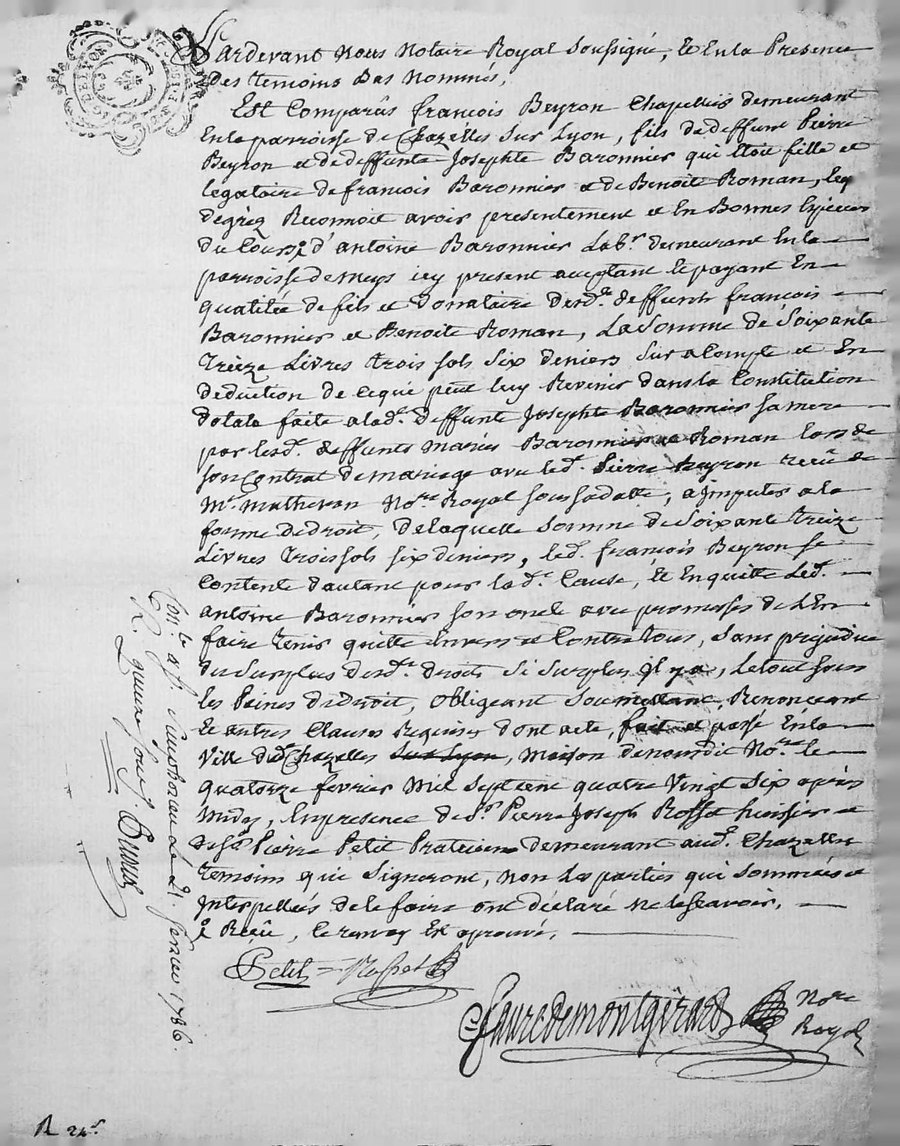 Pardevant Nous Notaire Royal Soussigné, et En la Presence
Des temoins Bas Nommés,
Est Comparûs françois Beyron Chapellier demeurant
En la parroisse de Chazelles sur Lyon, fils de deffunt Pierre
Beyron et de deffunte Josephte Baronnier qui Etoit fille et
legataire de françois Baronnier et de Benoite Roman, lequel
de gréz Reconnoit avoir presentement et En Bonnes Espèces
du Cours d'antoine Baronnier Labr. demeurant En la
parroisse de Meys icy present acceptant et payant En
qualitée de fils et donataire desd. deffunts françois
Baronnier et Benoite Roman, La Somme de Soixante
treize Livres trois sols Six deniers Sur et a Compte et En
deduction de ce qui peut luy Revenir dans la Constitution
dotale faite a lade. deffunte Josephte Baronnier sa mere
par lesd. deffunts mariés Baronnier et Roman lors de
son Contrat de mariage avec led. Pierre Beyron reçû de
Me. Mathevon Nore. Royal sous sa datte, a imputer a la
forme de Droit, de laquelle Somme de Soixante treize
Livres trois sols six deniers, led. françois Beyron se
Contente dautant pour lade. Cause, et En quitte Led.
antoine Baronnier son oncle avec promesses de L'En
faire tenir quitte Envers et Contre tous, sans prejudice
du Surplus desd. droits Si Surplus il y a, le tout sous
les Peines de Droit, obligeant Soumettant, Renonceant
et autres Clauses Requises dont acte, fait et passé En la
Ville dud. Chazelles sur Lyon, Maison de nousdit Nore. le
quatorze fevrier Mil Sept Cent quatre Vingt Six après
Midy, En presence de Sr. Pierre Joseph Rosset huissier et
de Sr. Pierre Petit Praticien demeurant aud. Chazelles
temoins qui Signeront, Non Les parties qui Sommées et
Interpellées de le faire ont déclaré Ne le sçavoir,
Reçûe, le renvoy Est aprouvé,
Petit Rosset
Faure de montgirard Nore
Royal
Conle at. Simphorien Le 21 fevrier 1786.
R. quinze sols
R 24s